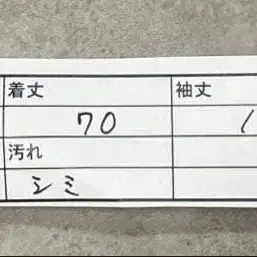 着丈 袖丈
70
汚れ
シミ